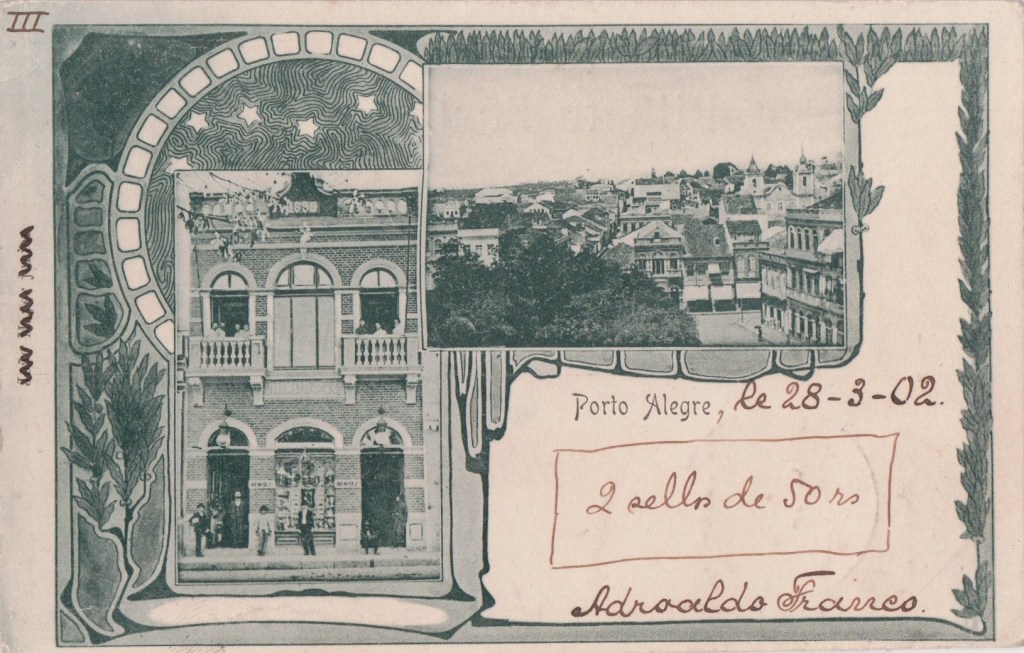 III
1898
Porto Alegre, le 28-3-02.
2 sellos de 50 rs
Adroaldo Franco.